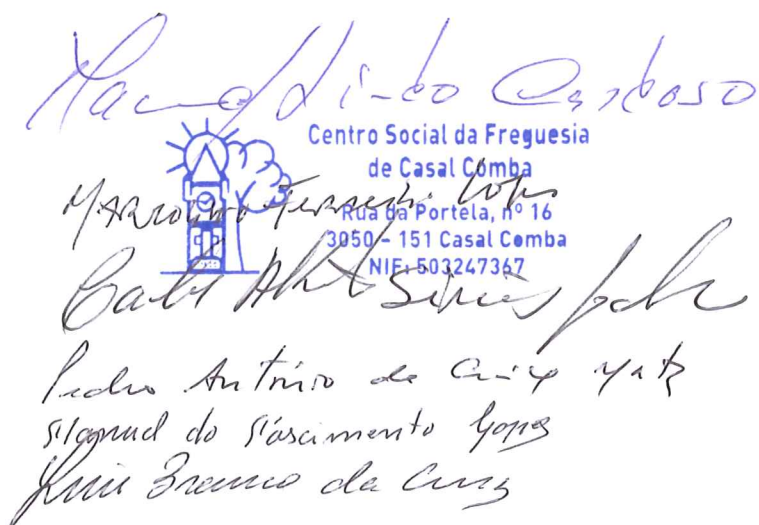 Manuel Lindo Cardoso
Centro Social da Freguesia
de Casal Comba
Ferreira Lopes
Rua da Portela, nº 16
3050 - 151 Casal Comba
NIF: 503247367
Carlos Alberto Simões
Pedro António da Cruz
Manuel do Nascimento Lopes
Luis Branco da Cruz